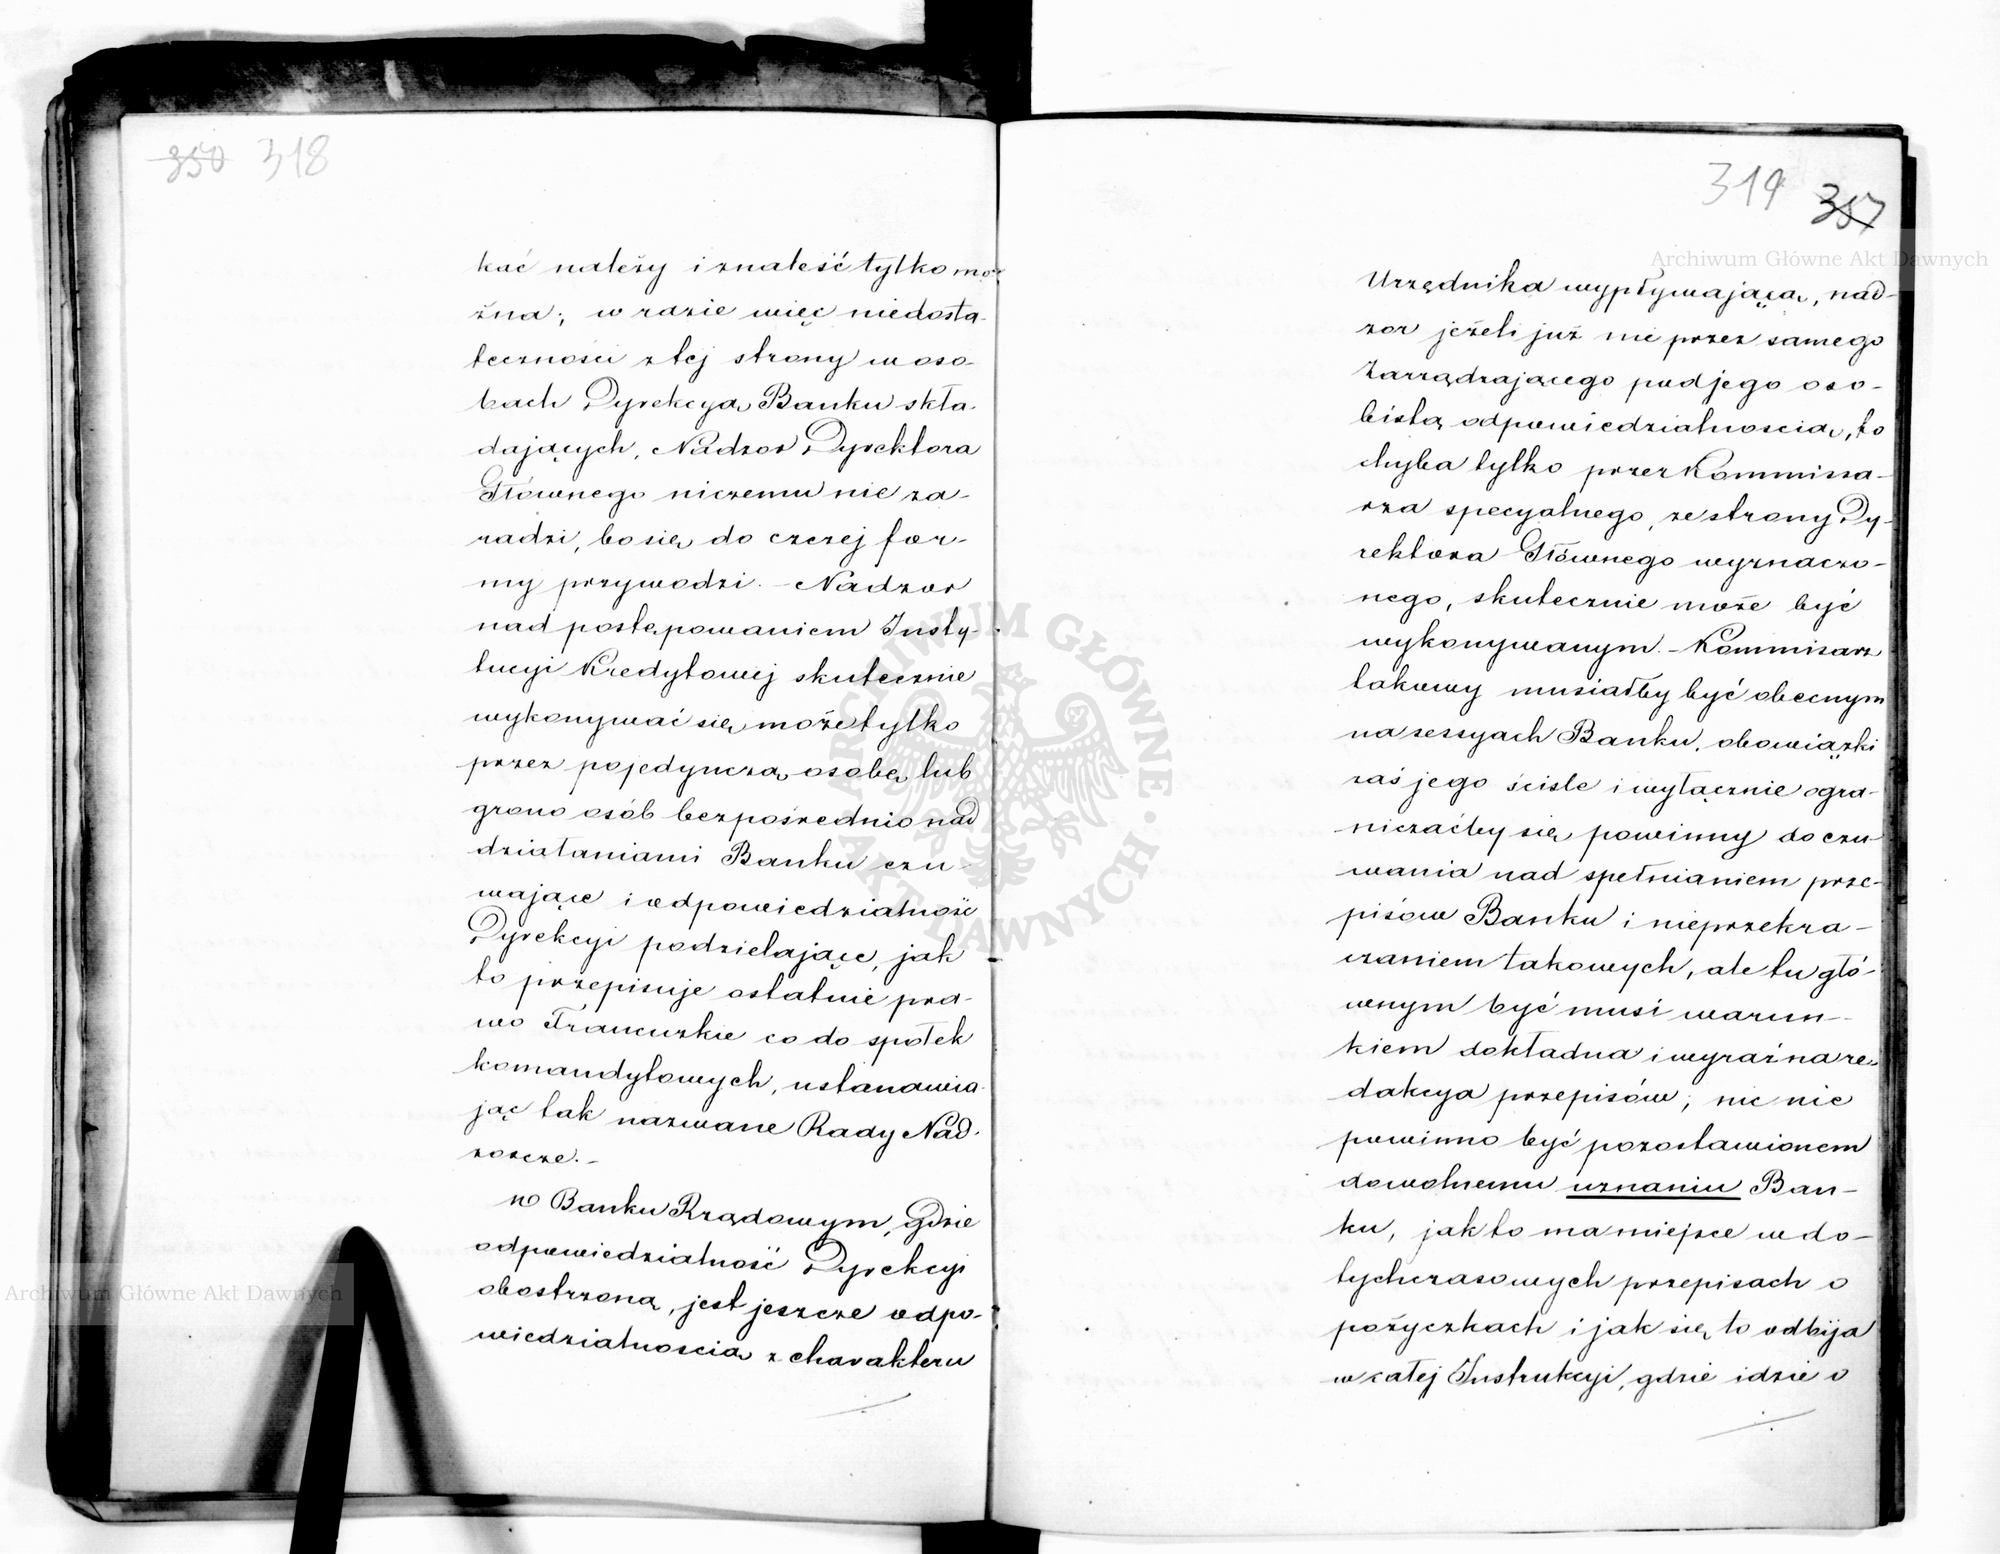 350 318
kać należy i znaleść tylko mo-
żna; w razie więc niedosta-
teczności z tej strony w oso-
bach Dyrekcyą Banku skła-
dających, Nadzor Dyrektora
Głównego niczemu nie za-
radzi, bo się do czczej for-
my przywodzi. – Nadzor
nad postępowaniem Insty-
tucyi Kredytowej skutecznie
wykonywać się może tylko
przez pojedynczą osobę lub
grono osób bezpośrednio nad
działaniami Banku czu-
wające i odpowiedzialność
Dyrekcyi podzielające, jak
to przepisuje ostatnie pra-
wo Francuzkie co do spółek
komandytowych, ustanawia-
jąc tak nazwane Rady Nad-
zorcze. –
W Banku Rządowym, gdzie
odpowiedzialność Dyrekcyi
obostrzoną, jest jeszcze odpo-
wiedzialnoscią z charakteru
319 357
Urzędnika wypływającą, nad-
zor jeżeli już nie przez samego
Zarządzającego pod jego oso-
bistą odpowiedzialnoscią, to
chyba tylko przez Kommissa-
rza specyalnego, ze strony Dy-
rektora Głównego wyznaczo-
nego, skutecznie może być
wykonywanym. – Kommisarz
takowy musiałby być obecnym
na sessyach Banku, obowiązki
zaś jego ściśle i wyłącznie ogra-
niczaćby się powinny do czu-
wania nad spełnianiem prze-
pisów Banku i nieprzekra-
czaniem takowych, ale tu głó-
wnym być musi warun-
kiem dokładna i wyraźna re-
dakcya przepisów; nic nie
powinno być pozostawionem
dowolnemu uznaniu Ban-
ku, jak to ma miejsce w do-
tychczasowych przepisach o
pożyczkach i jak się to odbija
w całej Instrukcyi, gdzie idzie o
Archiwum Główne Akt Dawnych
Archiwum Główne Akt Dawnych
ARCHIWUM GŁÓWNE AKT DAWNYCH